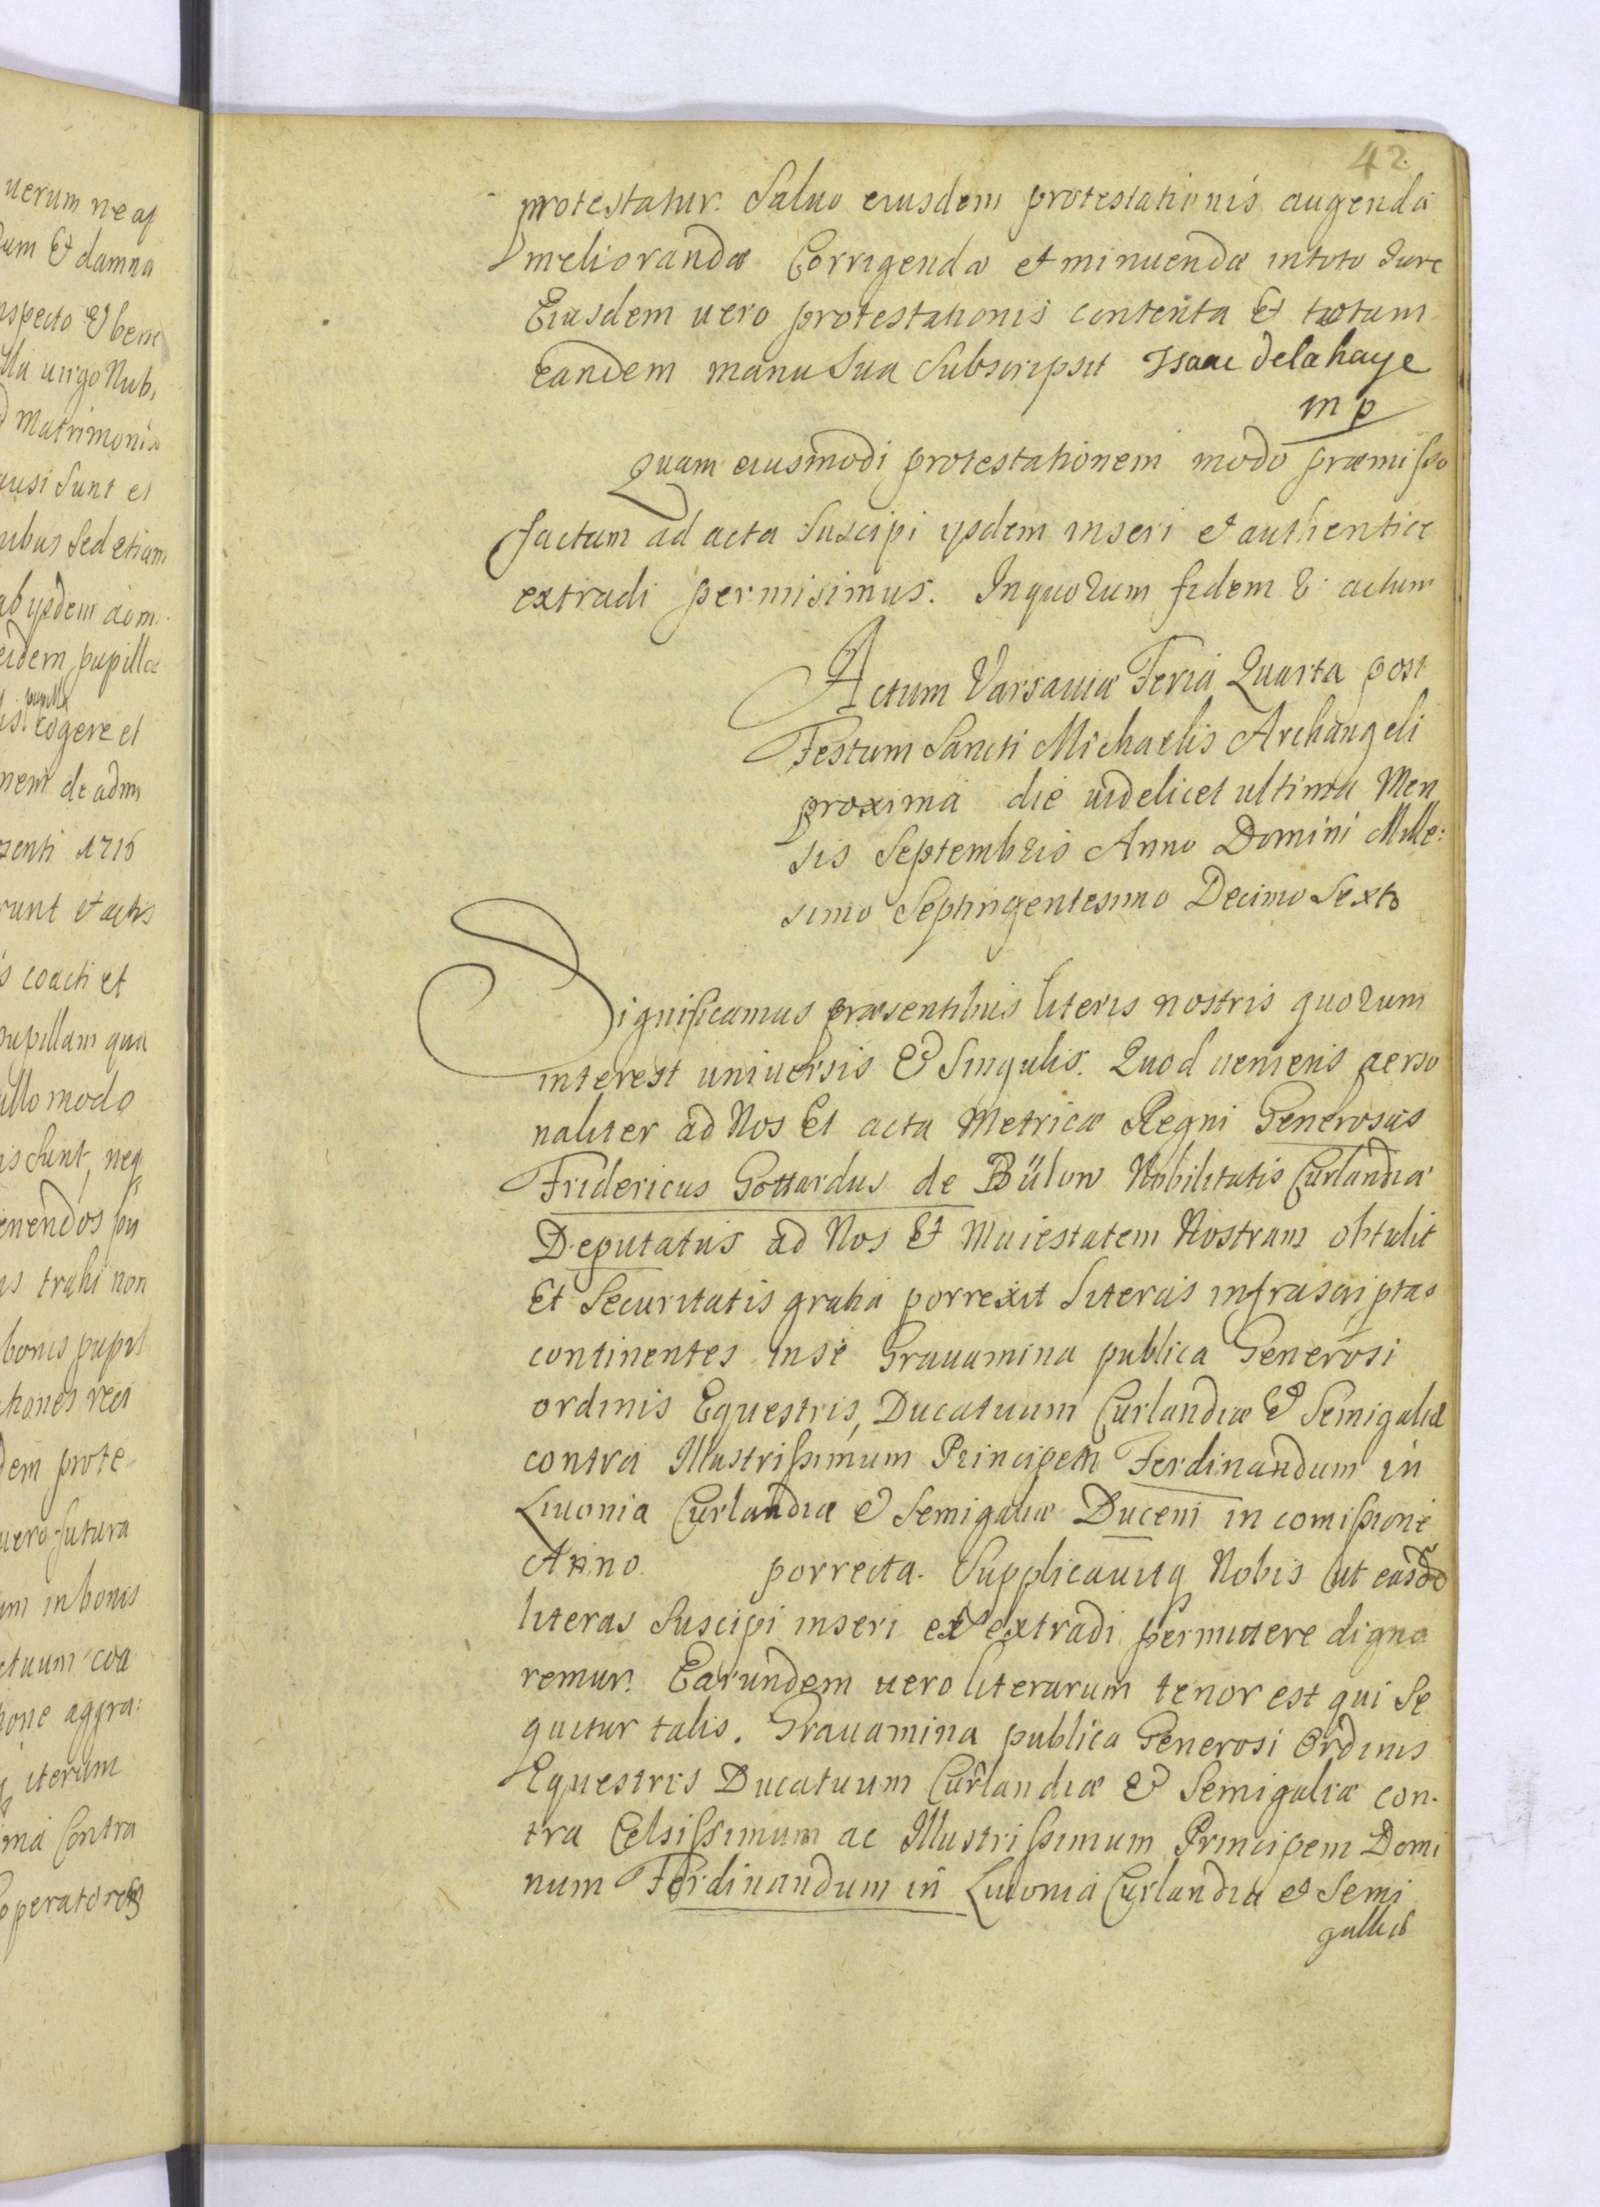 42.
protestatur. Saluo eiusdem protestationis augendæ
meliorandæ Corrigendæ et minuendæ in toto Iure
Eiusdem uero protestationis contenta Et totum
eandem manu Sua Subscripsit Isaac delahaye
mp
Quam eiusmodi protestationem modo præmisso
factam ad acta Suscipi ysdem inseri et authentice
extradi permisimus. In quorum fidem & actum
Actum Varsauiæ Feria Quarta post
Festum Sancti Michaelis Archangeli
proxima die uidelicet ultima Men
sis Septembris Anno Domini Mille:
simo Septingentesimo Decimo Sexto
Significamus præsentibus literis nostris quorum
interest universis & Singulis. Quod ueniens perso
naliter ad Nos Et acta Metricæ Regni Generosus
Fridericus Gottardus de Bülow Nobilitatis Curlandiæ
Deputatus ad Nos Et Maiestatem Nostram obtulit
Et Securitatis gratia porrexit literas infrascriptas
continentes in se Grauamina publica Generosi
ordinis Equestris, Ducatuum Curlandiæ & Semigaliæ
contra Illustrissimum Principem Ferdinandum in
Liuonia Curlandiæ & Semigaliæ Ducem in comissione
Anno porrecta. Supplicauitq Nobis ut easde
literas Suscipi inseri et extradi permittere digna
remur. Earundem uero literarum tenor est qui Se
quitur talis. Grauamina publica Generosi Ordinis
Equestris Ducatuum Curlandiæ & Semigaliæ con-
tra Celsissimum ac Illustrissimum Principem Domi
num Ferdinandum in Liuonia Curlandia et Semi
gallia
uerum ne
um Et damna
specto & bene
lla uirgo Nub,
Matrimonia
ausi Sunt et
ibus Sed etiam
ab ysdem
eidem pupillæ
cogere et
nem de adm
senti 1716
runt et actis
s coacti et
pupillam qua
ullo modo
is Sunt, neq
enendos
is trahi non
bonis pupil
dem prote
uero futura
um in bonis
ctuum coa
one aggra:
iterum
ma Contra